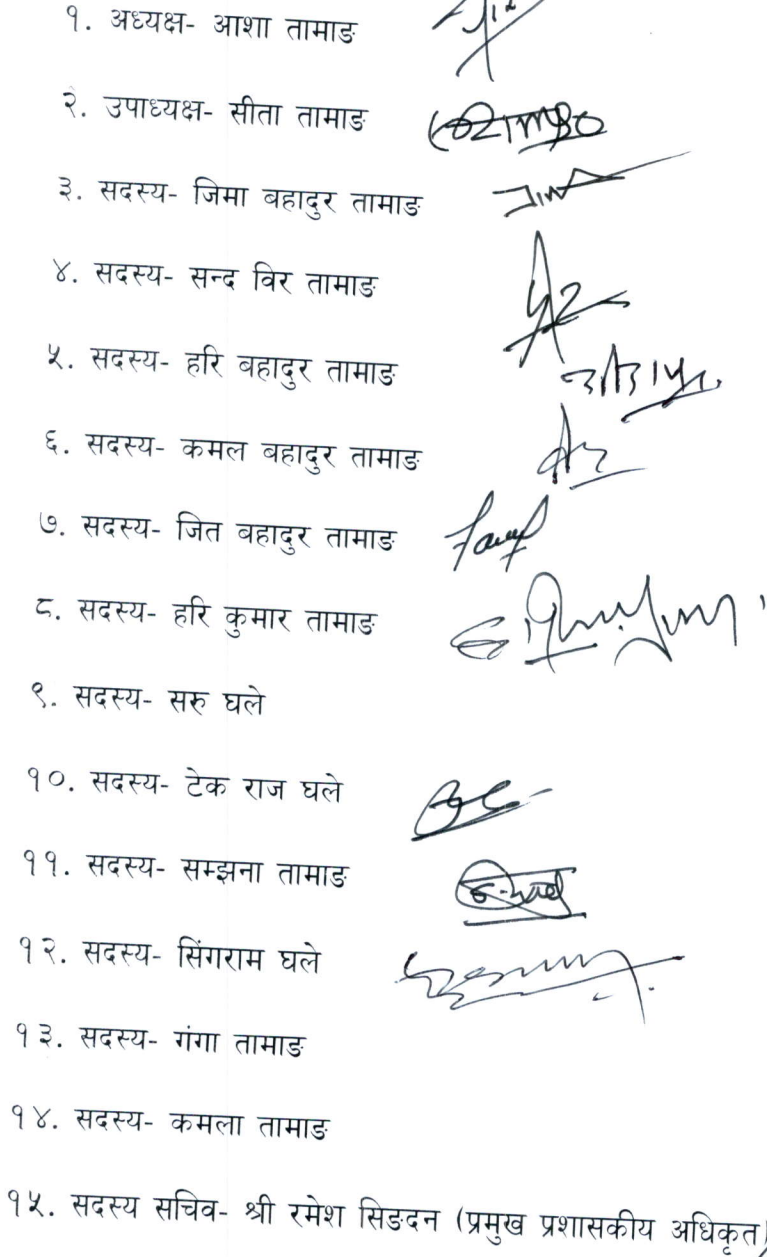 १. अध्यक्ष- आशा तामाङ
२. उपाध्यक्ष- सीता तामाङ
३. सदस्य- जिमा बहादुर तामाङ
४. सदस्य- सन्द विर तामाङ
५. सदस्य- हरि बहादुर तामाङ
६. सदस्य- कमल बहादुर तामाङ
७. सदस्य- जित बहादुर तामाङ
८. सदस्य- हरि कुमार तामाङ
९. सदस्य- सरु घले
१०. सदस्य- टेक राज घले
११. सदस्य- सम्झना तामाङ
१२. सदस्य- सिंगराम घले
१३. सदस्य- गंगा तामाङ
१४. सदस्य- कमला तामाङ
१५. सदस्य सचिव- श्री रमेश सिङदन (प्रमुख प्रशासकीय अधिकृत)